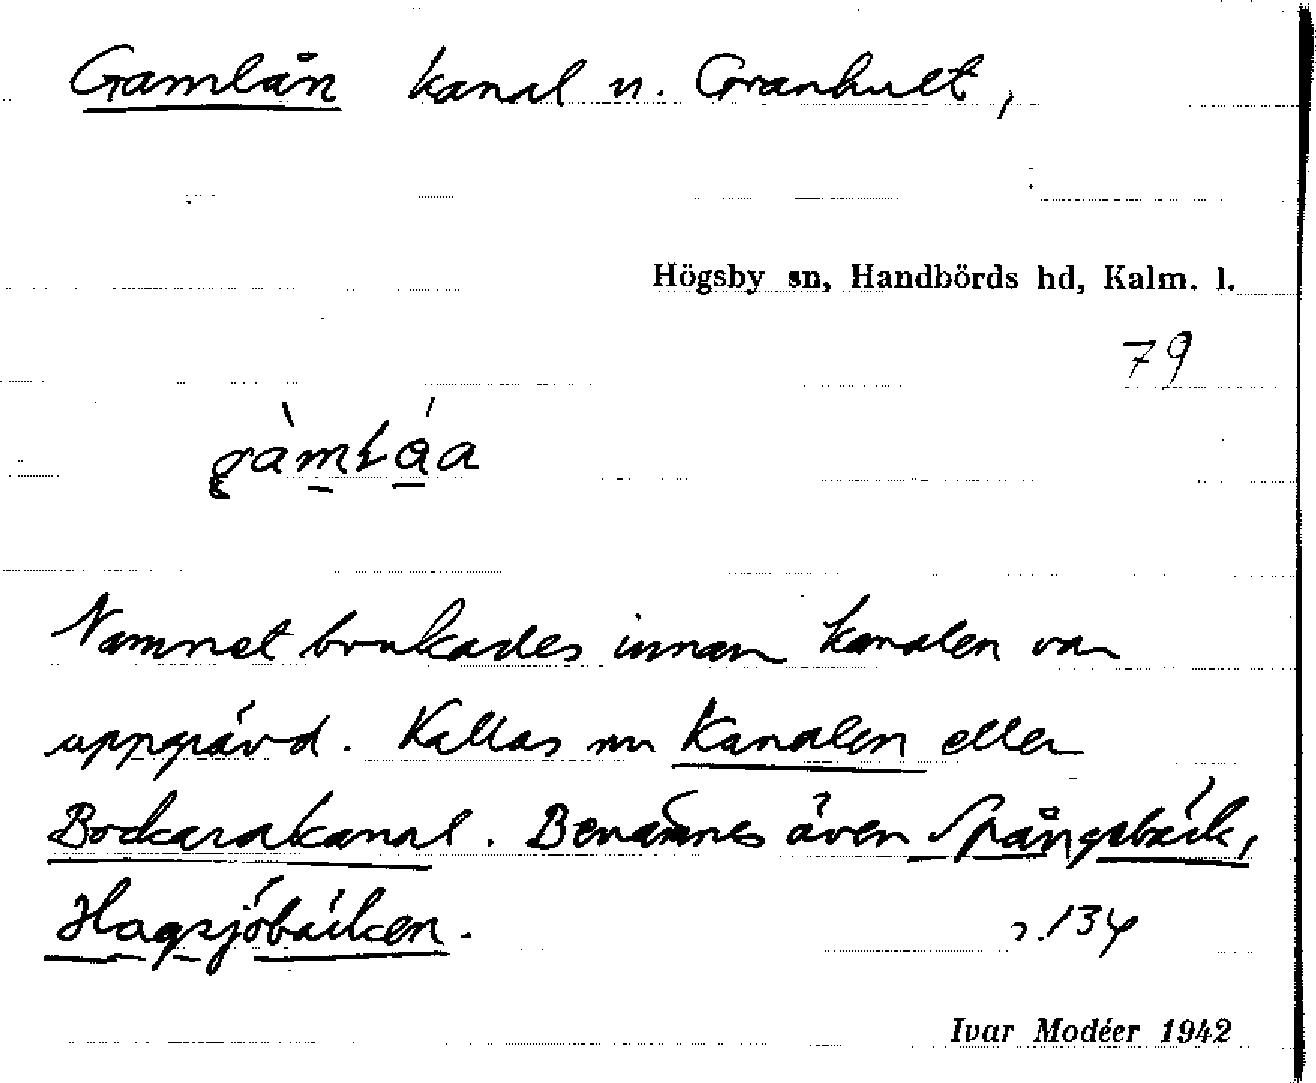 Gamlån kanal n. Granhult,
Högsby sn, Handbörds hd, Kalm. l.
79
Namnet brukades innan kanalen var
uppgrävd. Kallas nu Kanalen eller
Bockarakanal. Benämnes även Spångsbäck,
Hagsjöbäcken. s. 134
Ivar Modéer 1942